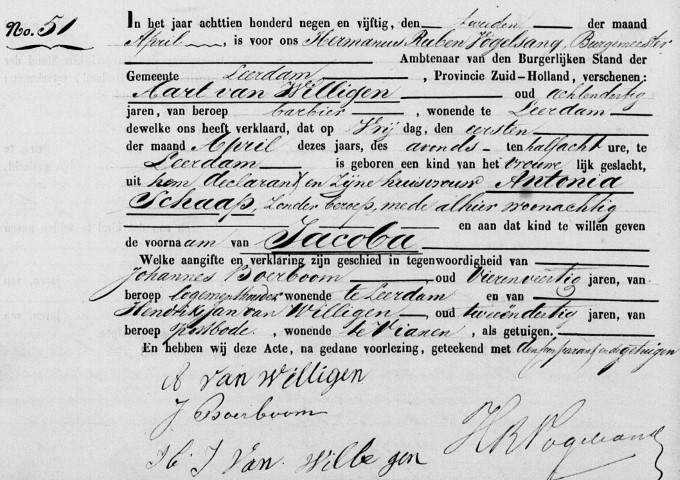 No. 51
In het jaar achttien honderd negen en vijftig, den tweeden der maand
April, is voor ons Hermanus Ruben Vogelsang, Burgemeester
Ambtenaar van den Burgerlijken Stand der
Gemeente Leerdam, Provincie Zuid-Holland, verschenen:
Aart van Willigen oud achtendertig
jaren, van beroep barbier, wonende te Leerdam
dewelke ons heeft verklaard, dat op Vrij dag, den eersten
der maand April dezes jaars, des avonds ten half acht ure, te
Leerdam is geboren een kind van het vrouwe lijk geslacht,
uit hem declarant en zijne huisvrouw Antonia
Schaap, zonder beroep, mede alhier woonachtig
en aan dat kind te willen geven
de voornaam van Jacoba
Welke aangifte en verklaring zijn geschied in tegenwoordigheid van
Johannes Boerboom, oud vierenveertig jaren, van
beroep logementhouder wonende te Leerdam en van
Hendrik Jan van Willigen, oud tweeëndertig jaren, van
beroep postbode, wonende te Vianen, als getuigen.
En hebben wij deze Acte, na gedane voorlezing, geteekend met den comparant en de getuigen
A van Willigen
J. Boerboom
H. J. van Willigen
HRVogelsang